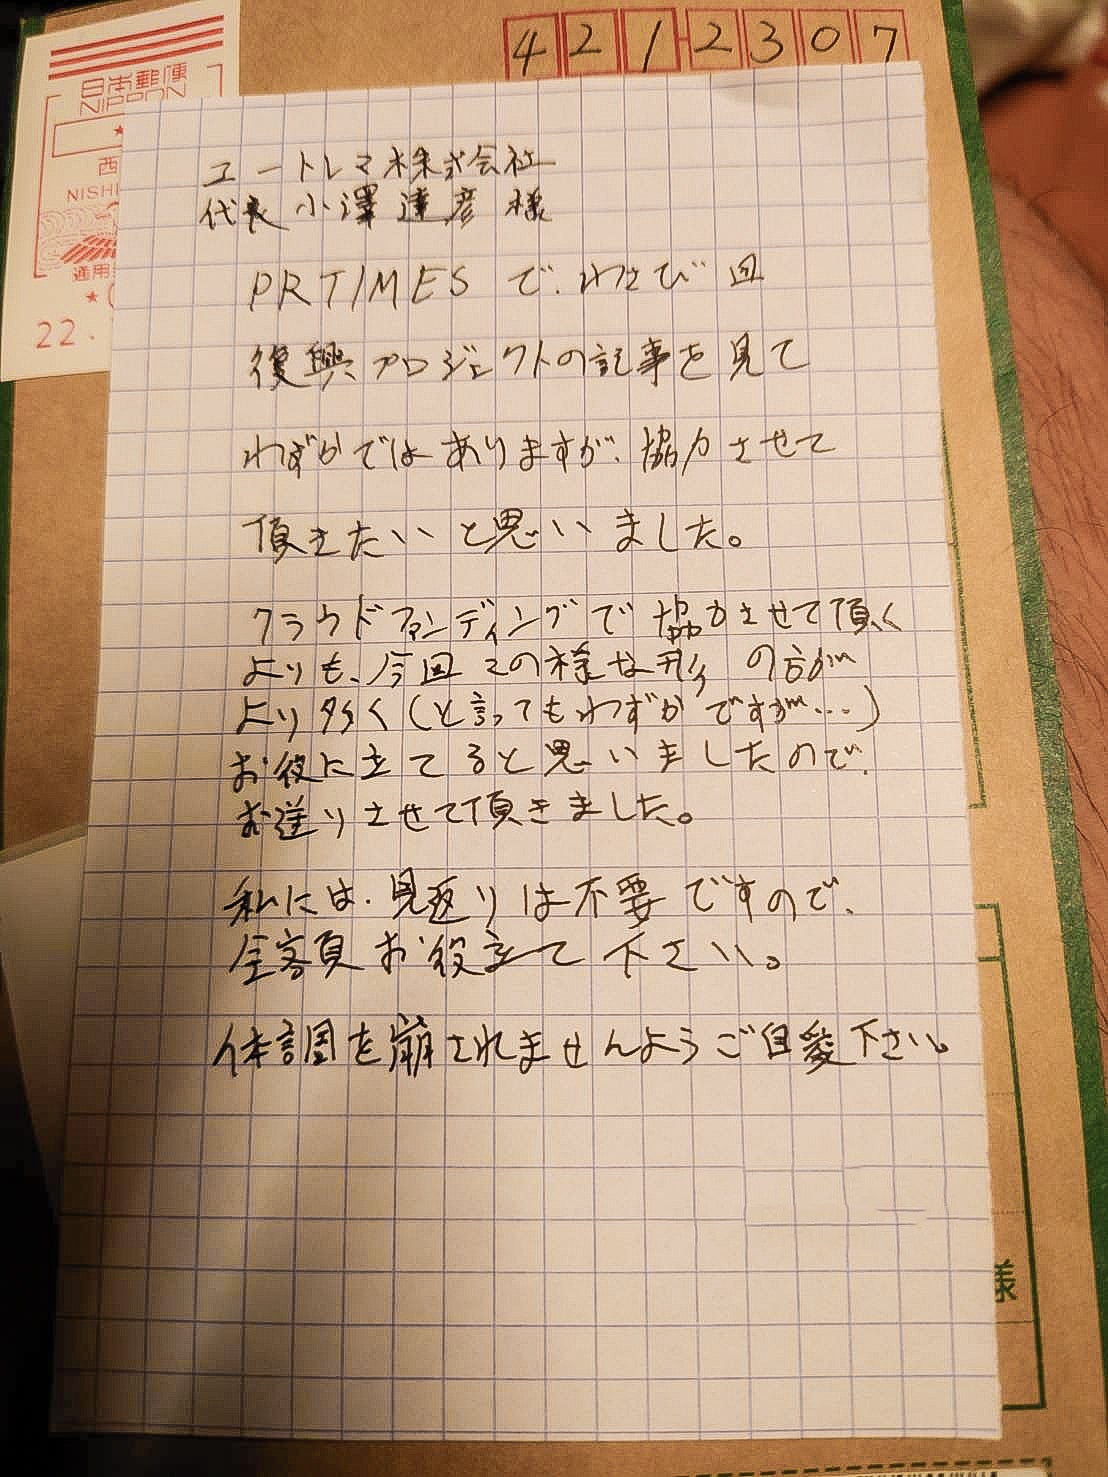 4212307
日本郵便
NIPPON
西
NISHI
通用
22.
ユートレマ株式会社
代表 小澤達彦 様
PRTIMESで、わさび田
復興プロジェクトの記事を見て
わずかではありますが、協力させて
頂きたいと思いました。
クラウドファンディングで協力させて頂く
よりも、今回この様な形の方が
より多く(と言ってもわずかですが…)
お役に立てると思いましたので、
お送りさせて頂きました。
私には、見返りは不要ですので、
全額お役立て下さい。
体調を崩されませんようご自愛下さい。
様